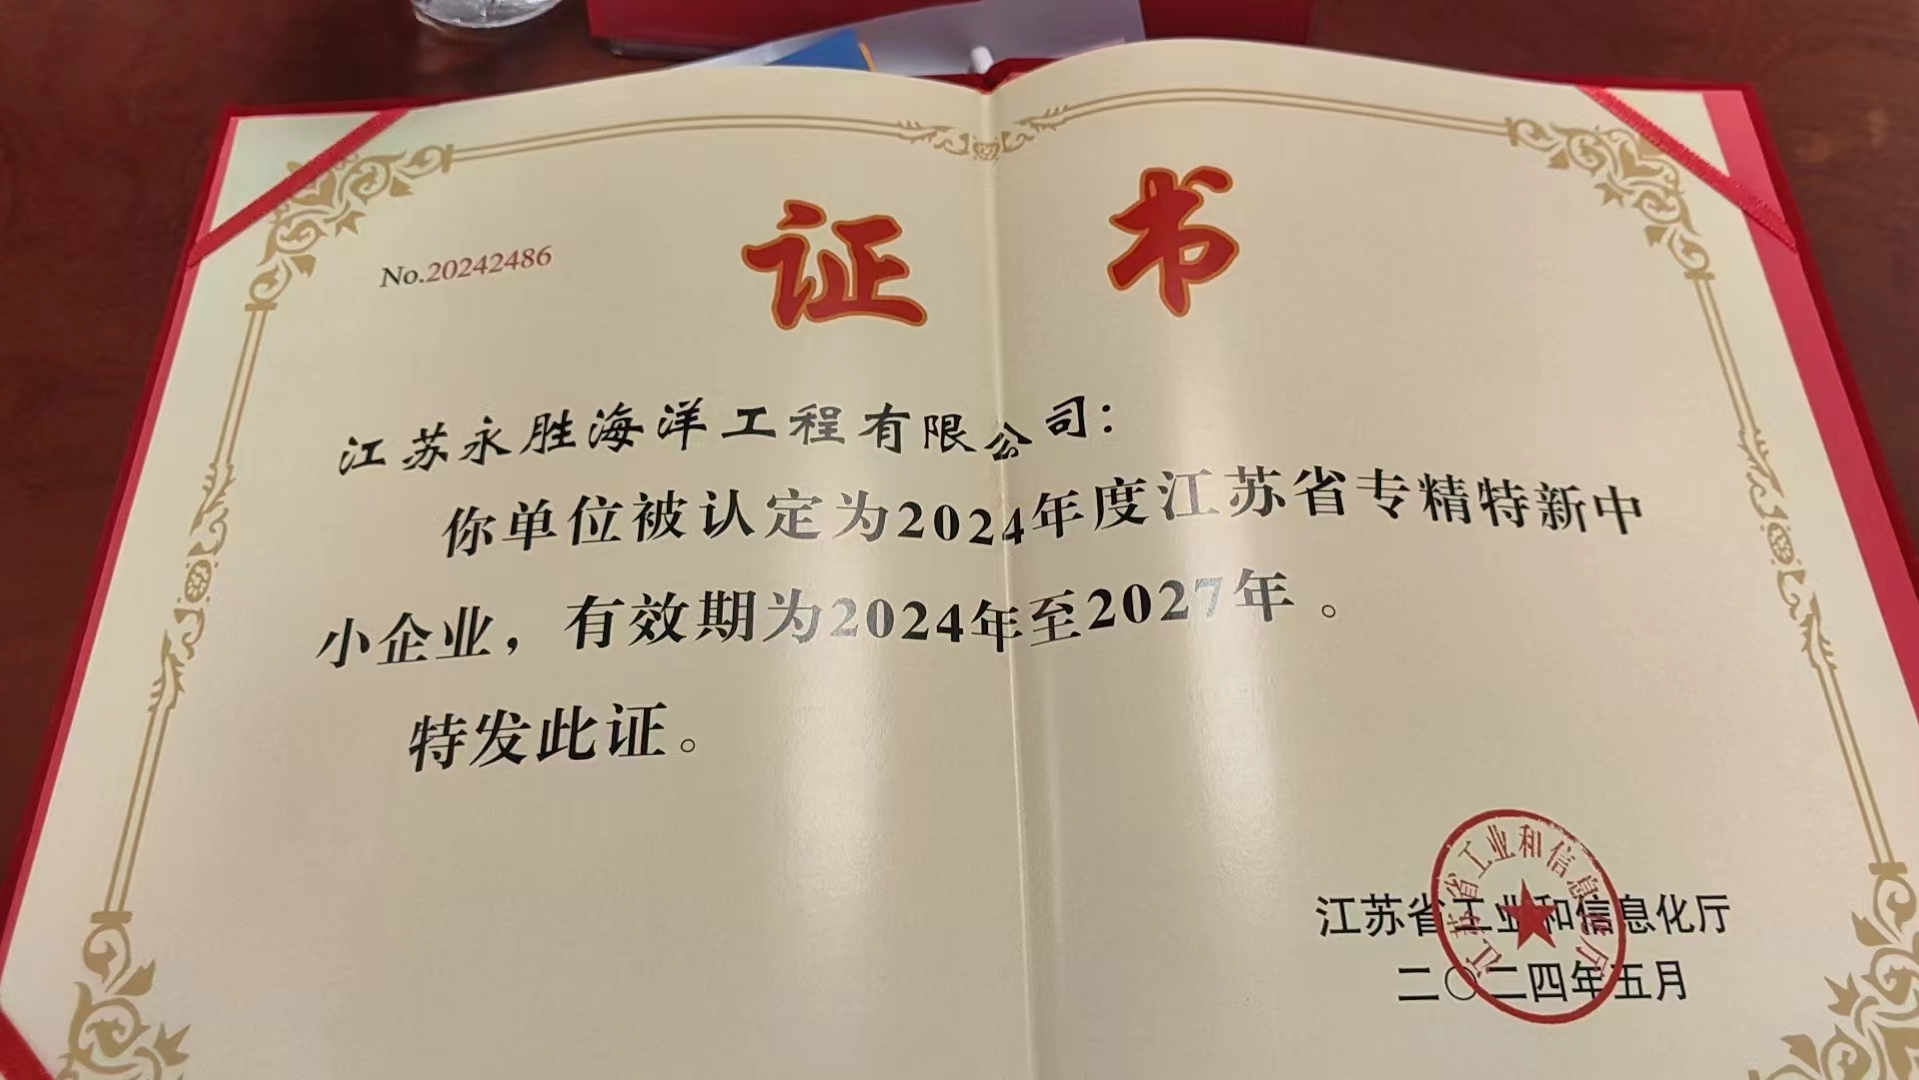 证书
No.20242486
江苏永胜海洋工程有限公司:
你单位被认定为2024年度江苏省专精特新中
小企业，有效期为2024年至2027年。
特发此证。
江苏省工业和信息化厅
江苏省工业和信息化厅
二〇二四年五月